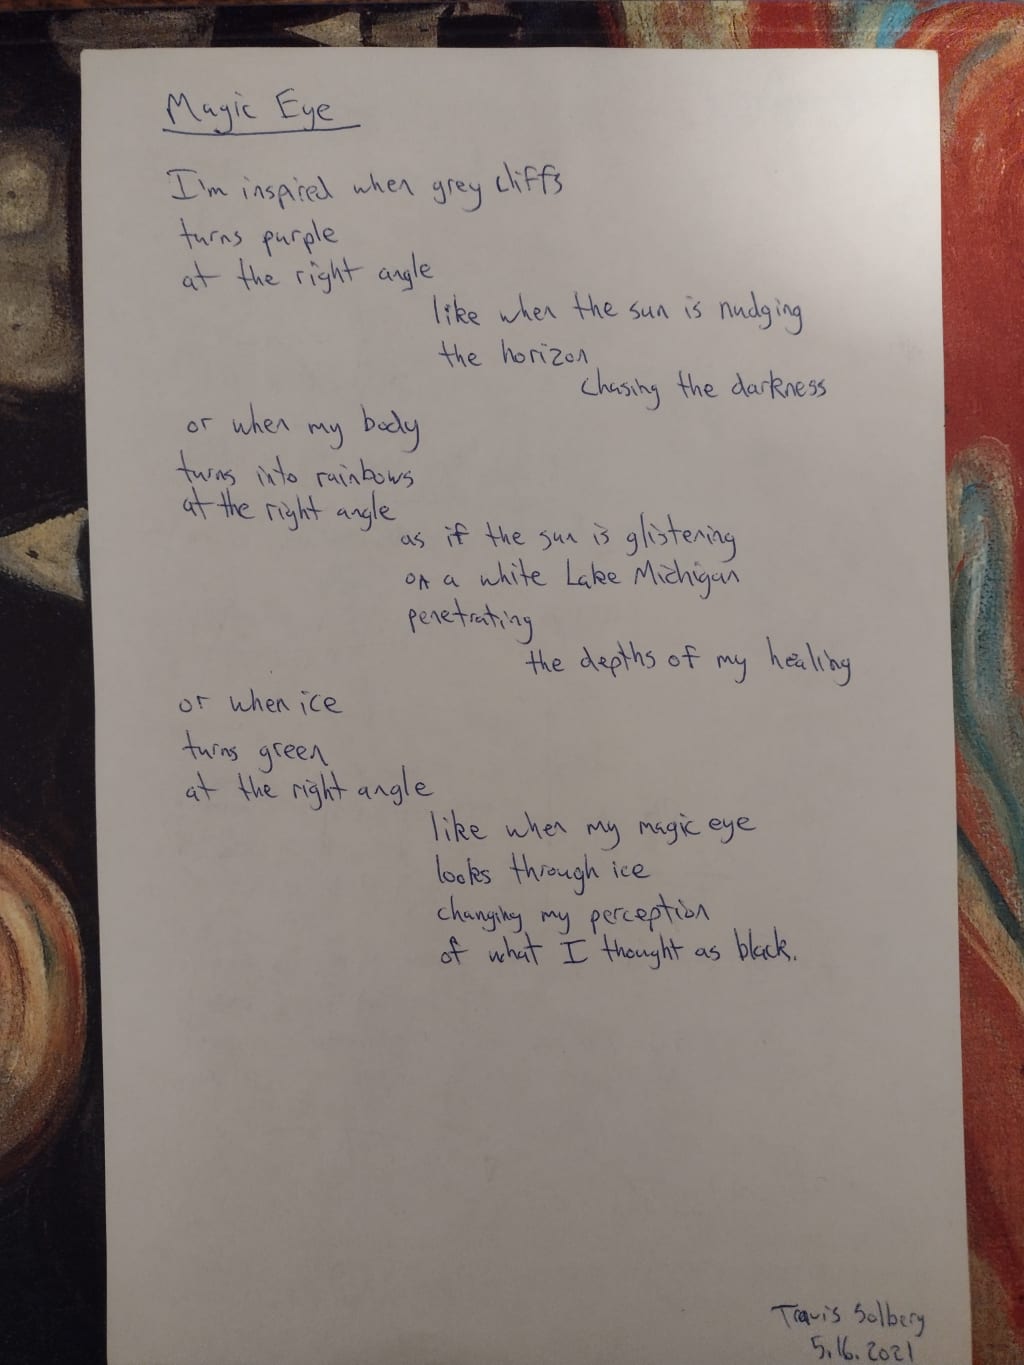 Magic Eye
I'm inspired when grey cliffs
turns purple
at the right angle
like when the sun is nudging
the horizon
chasing the darkness
or when my body
turns into rainbows
at the right angle
as if the sun is glistening
on a white Lake Michigan
penetrating
the depths of my healing
or when ice
turns green
at the right angle
like when my magic eye
looks through ice
changing my perception
of what I thought as black.
Travis Solberg
5.16.2021